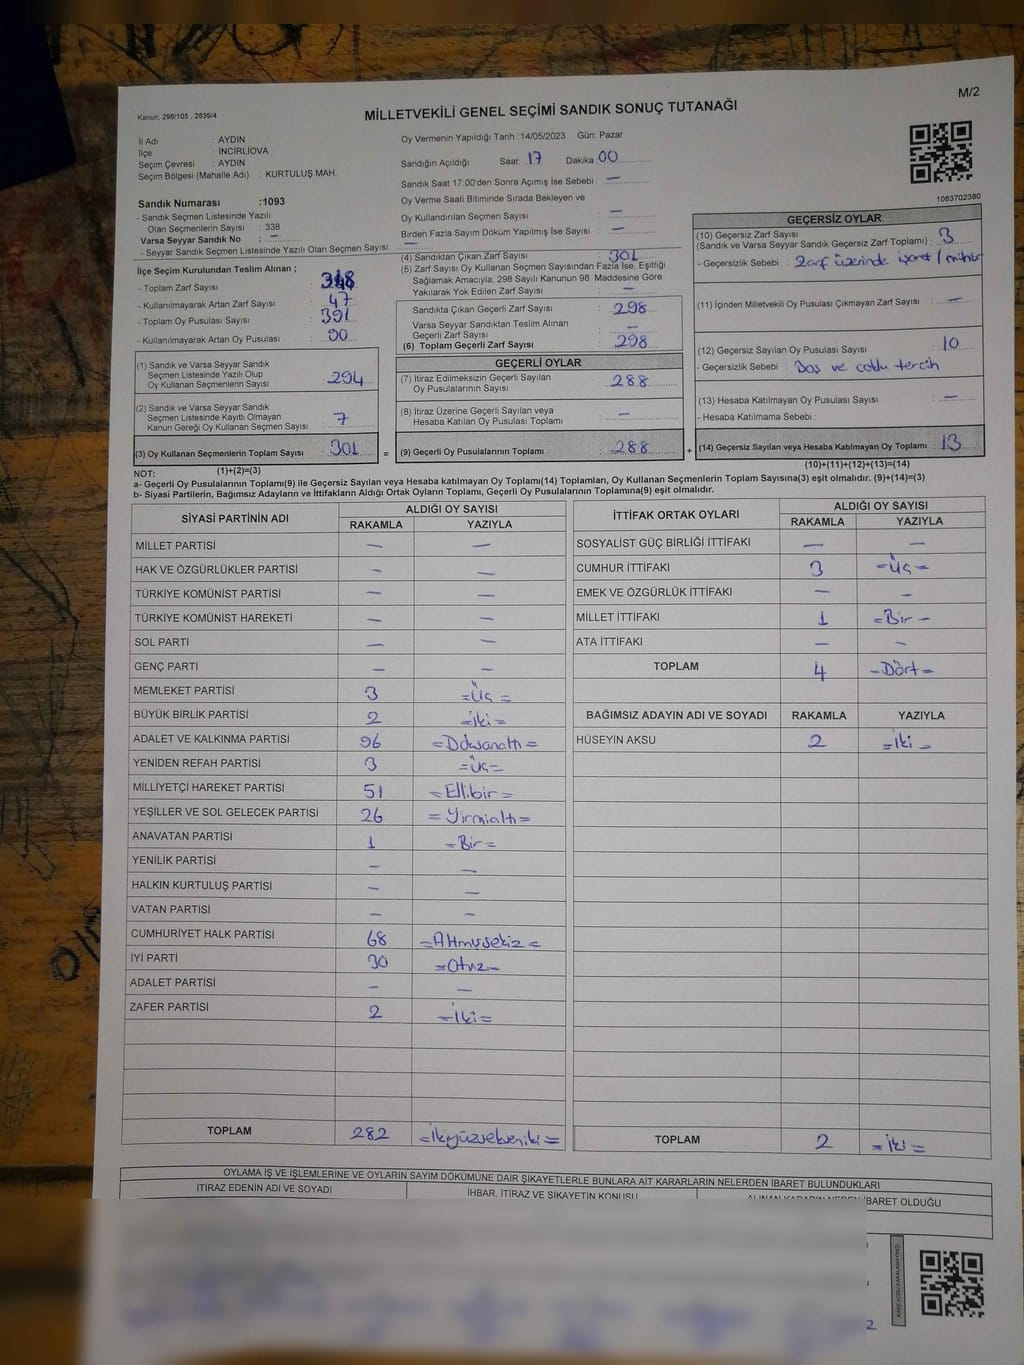 Kanun: 298/105 , 2839/4
MİLLETVEKİLİ GENEL SEÇİMİ SANDIK SONUÇ TUTANAĞI
M/2
İl Adı : AYDIN
İlçe : İNCİRLİOVA
Seçim Çevresi : AYDIN
Seçim Bölgesi (Mahalle Adı) : KURTULUŞ MAH.
Sandık Numarası :1093
- Sandık Seçmen Listesinde Yazılı
Olan Seçmenlerin Sayısı : 338
Varsa Seyyar Sandık No : —
- Seyyar Sandık Seçmen Listesinde Yazılı Olan Seçmen Sayısı: —
İlçe Seçim Kurulundan Teslim Alınan ;
- Toplam Zarf Sayısı : 348
- Kullanılmayarak Artan Zarf Sayısı : 47
- Toplam Oy Pusulası Sayısı : 391
- Kullanılmayarak Artan Oy Pusulası : 90
(1) Sandık ve Varsa Seyyar Sandık
Seçmen Listesinde Yazılı Olup
Oy Kullanan Seçmenlerin Sayısı : 294
(2) Sandık ve Varsa Seyyar Sandık
Seçmen Listesinde Kayıtlı Olmayan
Kanun Gereği Oy Kullanan Seçmen Sayısı : 7
(3) Oy Kullanan Seçmenlerin Toplam Sayısı : 301
(1)+(2)=(3)
Oy Vermenin Yapıldığı Tarih :14/05/2023 Gün: Pazar
Sandığın Açıldığı Saat: 17 Dakika :00
Sandık Saat 17:00'den Sonra Açılmış İse Sebebi : —
Oy Verme Saati Bitiminde Sırada Bekleyen ve
Oy Kullandırılan Seçmen Sayısı : —
Birden Fazla Sayım Döküm Yapılmış İse Sayısı : —
(4) Sandıktan Çıkan Zarf Sayısı : 301
(5) Zarf Sayısı Oy Kullanan Seçmen Sayısından Fazla İse, Eşitliği
Sağlamak Amacıyla; 298 Sayılı Kanunun 98. Maddesine Göre
Yakılarak Yok Edilen Zarf Sayısı : —
Sandıkta Çıkan Geçerli Zarf Sayısı : 298
Varsa Seyyar Sandıktan Teslim Alınan
Geçerli Zarf Sayısı : —
(6) Toplam Geçerli Zarf Sayısı : 298
GEÇERLİ OYLAR
(7) İtiraz Edilmeksizin Geçerli Sayılan
Oy Pusulalarının Sayısı : 288
(8) İtiraz Üzerine Geçerli Sayılan veya
Hesaba Katılan Oy Pusulası Toplamı : —
= (9) Geçerli Oy Pusulalarının Toplamı : 288 +
1083702380
GEÇERSİZ OYLAR
(10) Geçersiz Zarf Sayısı
(Sandık ve Varsa Seyyar Sandık Geçersiz Zarf Toplamı) : 3
- Geçersizlik Sebebi : Zarf üzerinde işaret / mühür
(11) İçinden Milletvekili Oy Pusulası Çıkmayan Zarf Sayısı : —
(12) Geçersiz Sayılan Oy Pusulası Sayısı : 10
- Geçersizlik Sebebi : Boş ve çoklu tercih
(13) Hesaba Katılmayan Oy Pusulası Sayısı : —
- Hesaba Katılmama Sebebi :
(14) Geçersiz Sayılan veya Hesaba Katılmayan Oy Toplamı : 13
(10)+(11)+(12)+(13)=(14)
NOT:
a- Geçerli Oy Pusulalarının Toplamı(9) ile Geçersiz Sayılan veya Hesaba katılmayan Oy Toplamı(14) Toplamları, Oy Kullanan Seçmenlerin Toplam Sayısına(3) eşit olmalıdır. (9)+(14)=(3)
b- Siyasi Partilerin, Bağımsız Adayların ve İttifakların Aldığı Ortak Oyların Toplamı, Geçerli Oy Pusulalarının Toplamına(9) eşit olmalıdır.
SİYASİ PARTİNİN ADI ALDIĞI OY SAYISI
RAKAMLA YAZIYLA
MİLLET PARTİSİ — —
HAK VE ÖZGÜRLÜKLER PARTİSİ — —
TÜRKİYE KOMÜNİST PARTİSİ — —
TÜRKİYE KOMÜNİST HAREKETİ — —
SOL PARTİ — —
GENÇ PARTİ — —
MEMLEKET PARTİSİ 3 =Üç=
BÜYÜK BİRLİK PARTİSİ 2 =İki=
ADALET VE KALKINMA PARTİSİ 96 =Doksanaltı=
YENİDEN REFAH PARTİSİ 3 =Üç=
MİLLİYETÇİ HAREKET PARTİSİ 51 =Ellibir=
YEŞİLLER VE SOL GELECEK PARTİSİ 26 =Yirmialtı=
ANAVATAN PARTİSİ 1 =Bir=
YENİLİK PARTİSİ — —
HALKIN KURTULUŞ PARTİSİ — —
VATAN PARTİSİ — —
CUMHURİYET HALK PARTİSİ 68 =Altmışsekiz=
İYİ PARTİ 30 =Otuz=
ADALET PARTİSİ — —
ZAFER PARTİSİ 2 =İki=
TOPLAM 282 =İkiyüzsekseniki=
İTTİFAK ORTAK OYLARI ALDIĞI OY SAYISI
RAKAMLA YAZIYLA
SOSYALİST GÜÇ BİRLİĞİ İTTİFAKI — —
CUMHUR İTTİFAKI 3 =Üç=
EMEK VE ÖZGÜRLÜK İTTİFAKI — —
MİLLET İTTİFAKI 1 =Bir=
ATA İTTİFAKI — —
TOPLAM 4 =Dört=
BAĞIMSIZ ADAYIN ADI VE SOYADI RAKAMLA YAZIYLA
HÜSEYİN AKSU 2 =İki=
TOPLAM 2 =İki=
OYLAMA İŞ VE İŞLEMLERİNE VE OYLARIN SAYIM DÖKÜMÜNE DAİR ŞİKAYETLERLE BUNLARA AİT KARARLARIN NELERDEN İBARET BULUNDUKLARI
İTİRAZ EDENİN ADI VE SOYADI İHBAR, İTİRAZ VE ŞİKAYETİN KONUSU ALINAN KARARIN NEDEN İBARET OLDUĞU
2